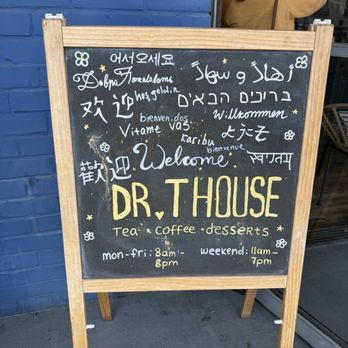 어서오세요
Добро Пожаловать
hoş geldin
أهلاً و سهلاً
欢迎
ברוכים הבאים
bienvenidos
Willkommen
Vítáme vás
Karibu
ようこそ
bienvenue
歡迎
Welcome
स्वागतम
DR. THOUSE
Tea · Coffee · desserts
mon-fri: 8am-
8pm
weekend: 11am-
7pm